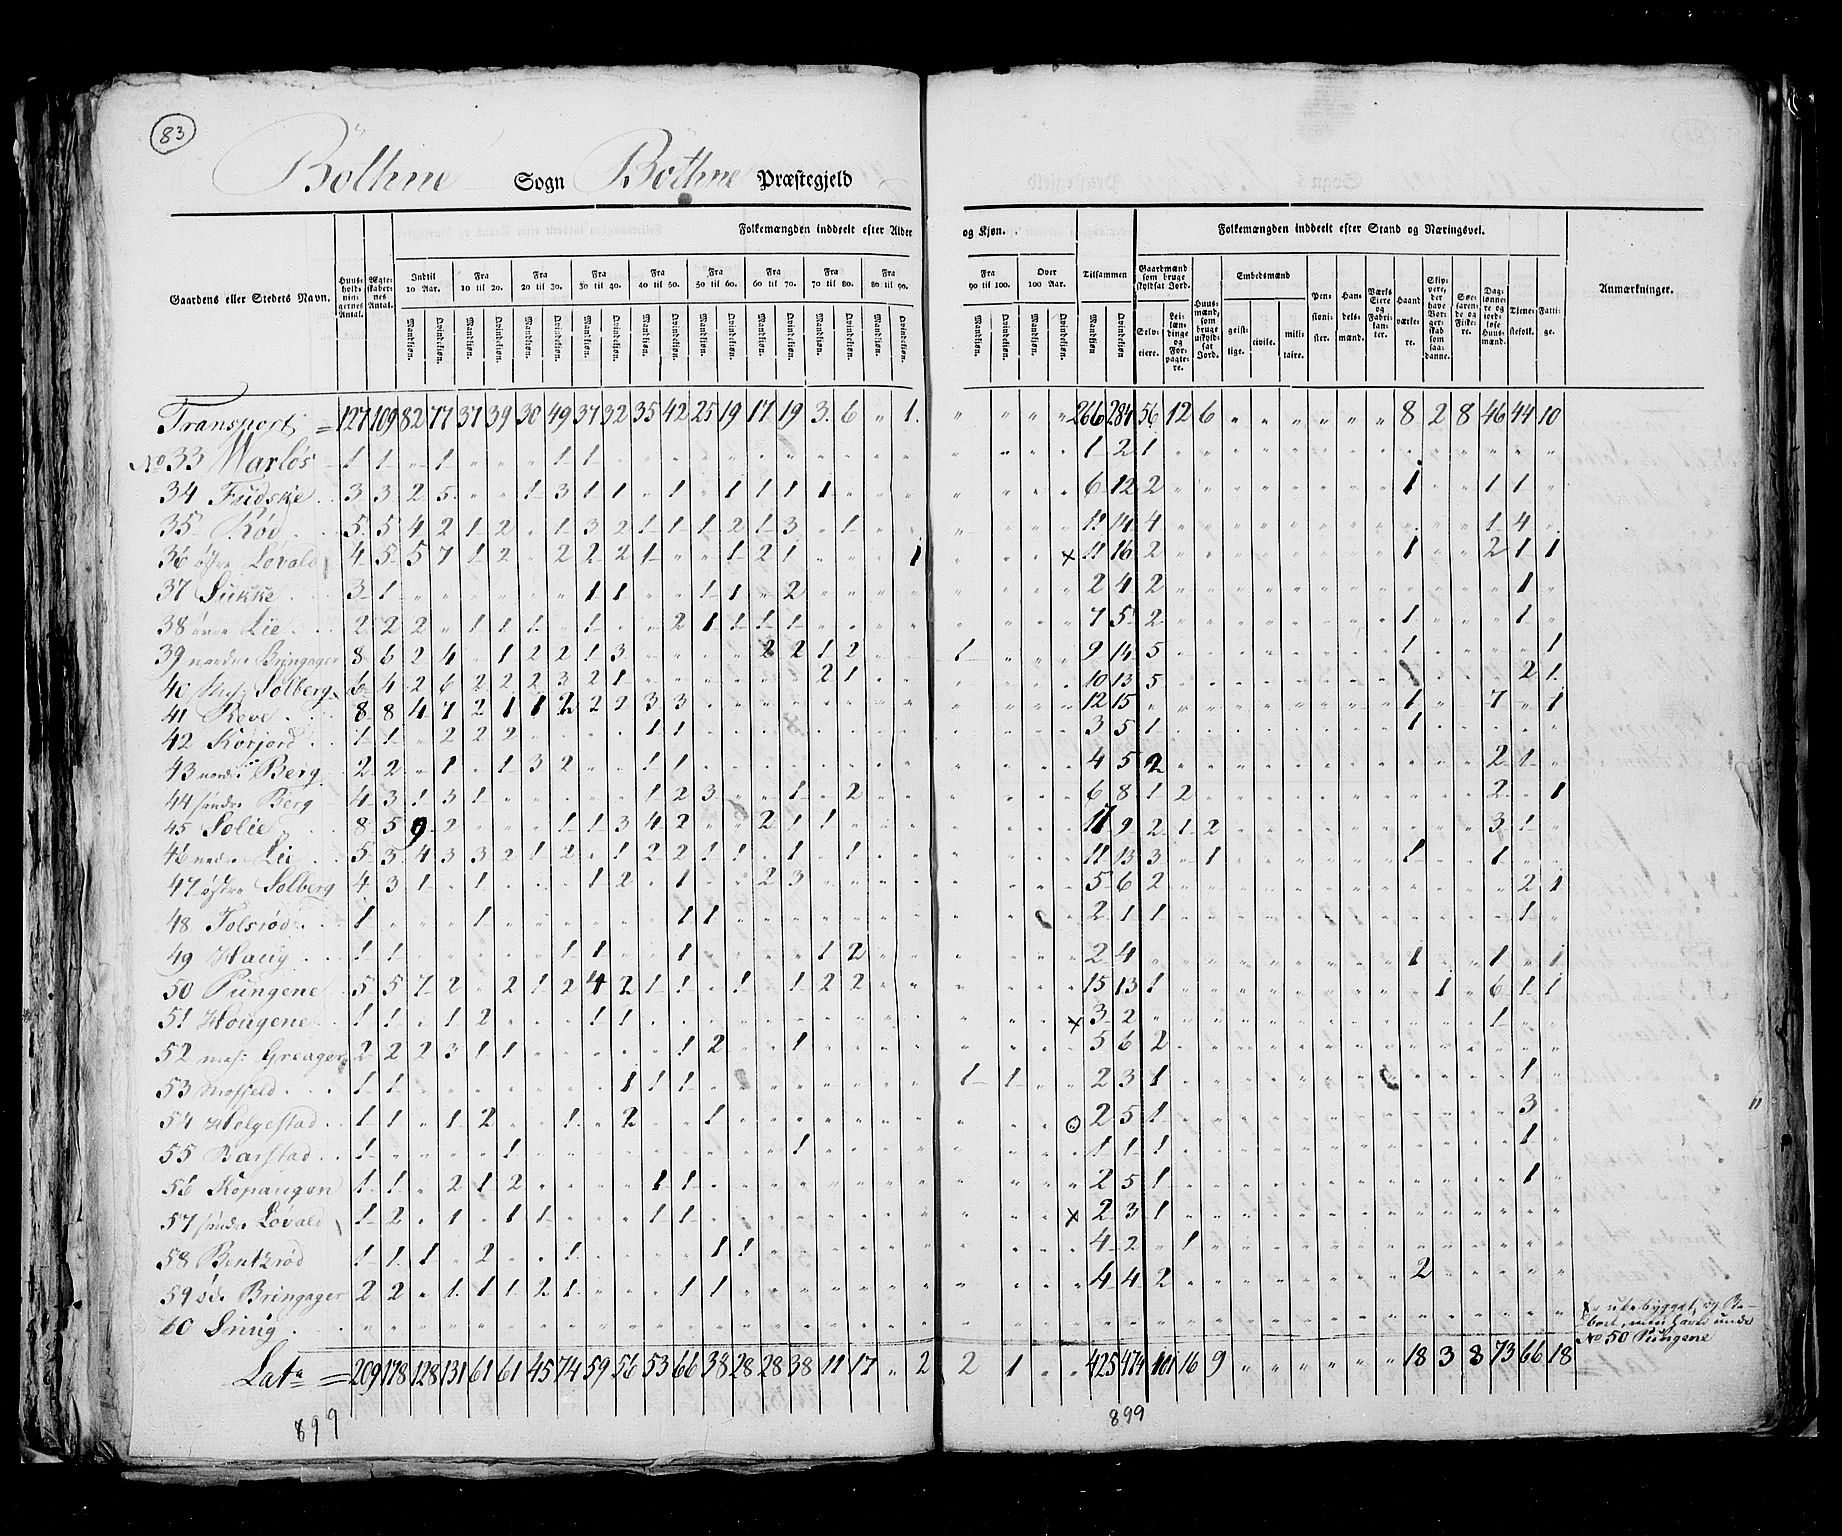 83
Bothne Sogn Bothne Præstegjeld
Folkemængden inddeelt efter Alder og Kjøn. Folkemængden inddeelt efter Stand og Næringsvei.
Gaardens eller Stedets Navn. Huus-holdnin-gernes Antal. Ægte-skaber-nes Antal. Indtil 10 Aar. Fra 10 til 20. Fra 20 til 30. Fra 30 til 40. Fra 40 til 50. Fra 50 til 60. Fra 60 til 70. Fra 70 til 80. Fra 80 til 90. Fra 90 til 100. Over 100 Aar. Tilsammen Gaardmænd som bruge skyldsat Jord. Huus-mænd, som bruge uskyldsat Jord. Embedsmænd Pen-sioni-ster. Han-dels-mænd. Værks Eiere og Fabri-kan-ter. Haand værke-re. Skip-pere, der have Bor-ger-skab som saa-danne. Søe-faren-de og Fiske-re. Dag-lønne-re og jord-løse Huus-mænd. Tjene-stefolk. Fatti-ge. Anmærkninger.
Mandkjøn. Qvindekjøn. Selv-eiere. Lei-læn-dinge og For-pagte-re. geist-lige. civile. mili-taire.
Transport = 127 109 82 77 37 39 30 49 37 32 35 42 25 19 17 19 3 6 " 1 " " " " 266 284 56 12 6 " " " " " " 8 2 8 46 44 10
No 33 Warløs 1 1 " 1 " " " 1 1 1 2 1
34 Fudskie 3 3 2 5 " " 1 3 1 1 " 1 " 1 1 1 1 6 12 2 1 1 1
35 Rød 5 5 4 2 1 2 " 1 3 2 1 1 1 2 1 3 " 1 11 14 4 1 4
36 østre Lovald 4 5 5 7 1 2 " 2 2 2 1 " " 1 2 1 1 x 11 16 2 1 2 1 1
37 Sukke 3 1 1 1 1 1 2 2 4 2 1
38 øvre Lie 2 2 2 " 1 1 1 " 1 2 1 1 1 1 7 5 2 1 1
39 nordre Bringager 8 6 2 4 " 1 2 2 1 3 2 2 1 2 1 9 14 5 1 1
40 Solberg 6 4 2 6 2 2 2 3 2 1 2 1 10 13 5 1 2 1
41 Reve 8 8 4 7 2 1 1 2 2 2 3 3 12 15 1 7 1
42 Korjord 1 1 " 2 2 2 1 1 3 5 1 1
43 nordre Berg 2 2 " 1 " 1 3 2 1 1 4 5 2 2 1
44 søndre Berg 4 3 1 3 1 1 2 3 1 2 6 8 1 2 2 1
45 Solie 8 5 9 2 1 1 3 4 2 2 1 1 17 9 2 1 2 3 1
46 nedre Lie 5 3 4 3 3 2 1 2 " 1 2 2 1 1 " 1 " 1 11 13 3 " 1 1 1
47 østre Solberg 4 3 1 " 1 1 2 " 1 2 3 5 6 2 2 1
48 Tolsrød 1 1 1 1 2 1 1 1
49 Haug 1 1 1 1 1 1 2 2 4 1 1 1
50 Pungene 5 5 7 2 " 2 1 2 4 2 1 1 " 1 " 1 2 2 15 13 1 1 6 1 1
51 Hougene 1 1 " 1 2 1 1 x 3 2 1
52 Greager 2 2 2 3 1 1 1 2 1 5 6 2
53 Mofjeld 1 1 1 1 1 1 1 2 3 1 1
54 Helgestad 1 1 " 1 2 1 2 1 2 5 1 3
55 Barstad 1 1 1 1 1 1 1
56 Kopangen 1 1 " 2 1 2 1 1 2 5 1 1
57 søndre Lovald 1 2 " 1 " 1 1 1 1 x 2 3 1
58 Bentzrød 1 1 1 " 2 1 1 1 4 2 " 1
59 Bringager 2 2 " 1 1 1 2 1 1 1 4 4 2 2
60 Snug
Er ubebygget, og
No 50 Pungene
Lat = 209 178 128 131 61 61 45 74 59 56 53 66 38 28 28 38 11 17 " 2 2 1 " " 425 474 101 16 9 " " " " " " 18 3 8 73 66 18
899
899